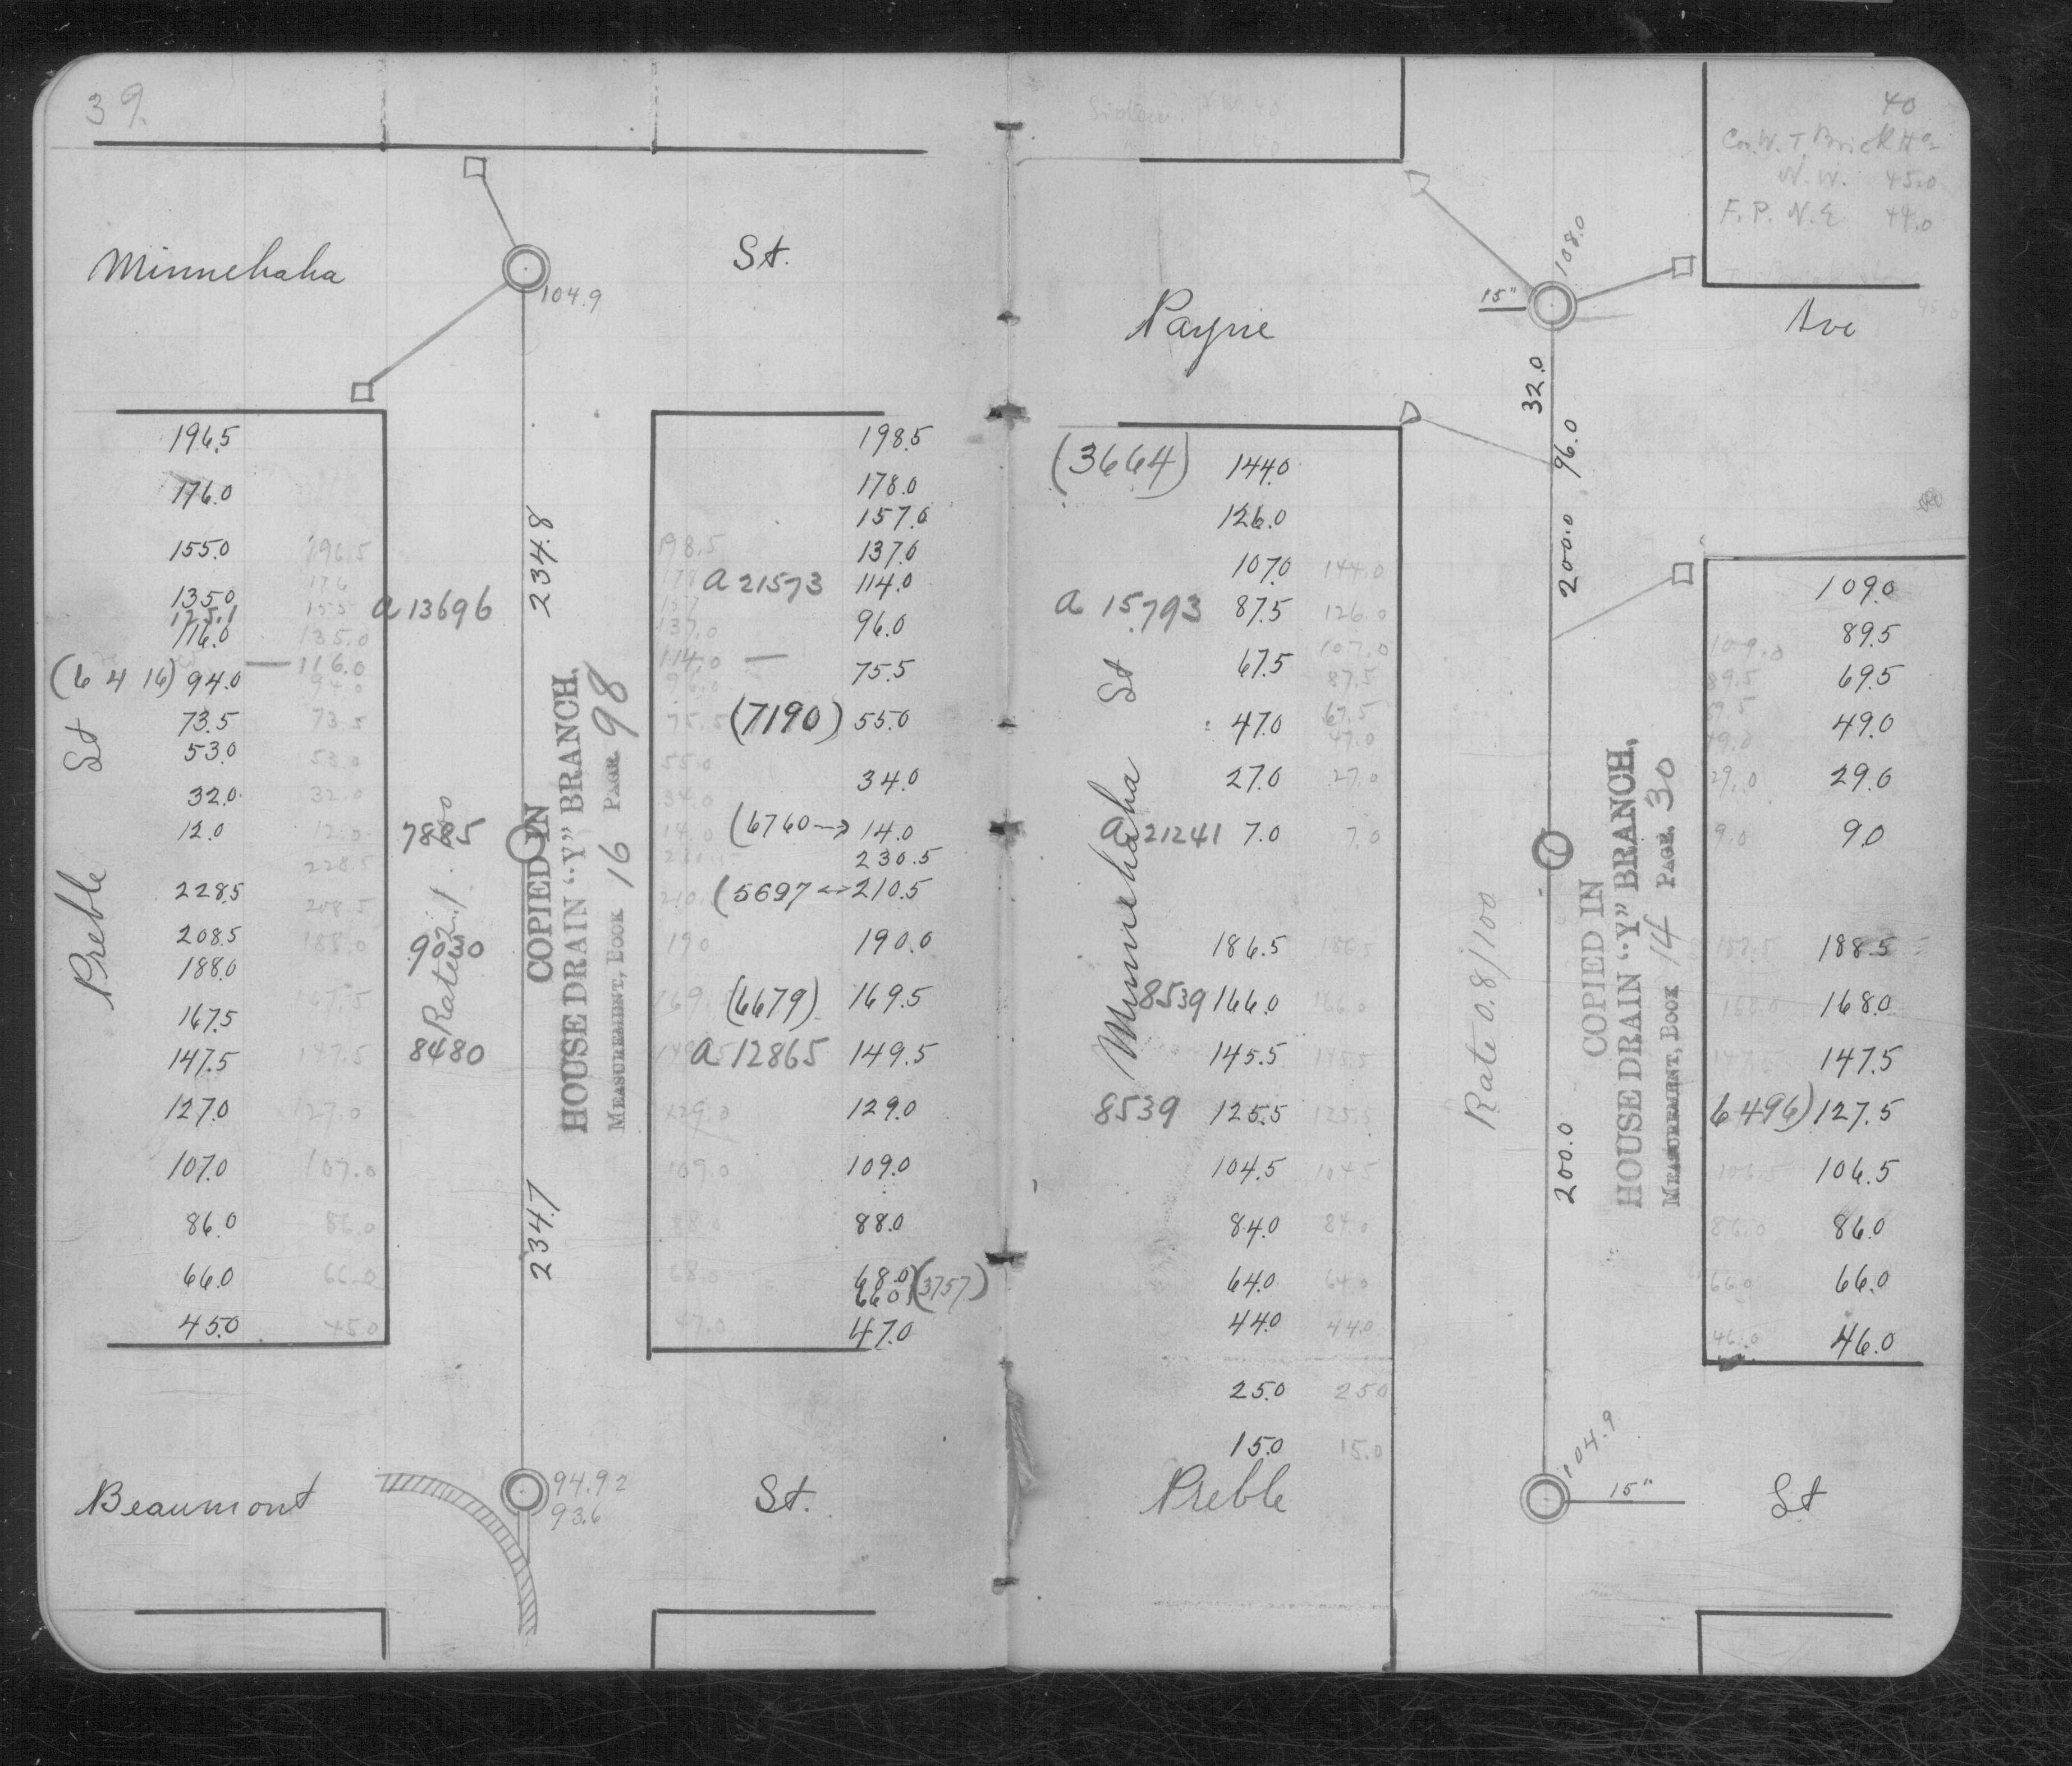 39.
Minnehaha St.
104.9
196.5
176.0
155.0
135.0
125.1
116.0
(6416) 94.0
73.5
53.0
32.0
12.0
228.5
208.5
188.0
167.5
147.5
127.0
107.0
86.0
66.0
45.0
Preble St
196.5
176
155
135.0
116.0
94.0
73.5
53.0
32.0
12.0
228.5
208.5
188.0
167.5
147.5
127.0
107.0
86.0
66.0
45.0
a 13696
7885
9030
8480
234.8
234.7
COPIED IN
HOUSE DRAIN "Y" BRANCH,
MEASUREMENT, BOOK 16 PAGE 98
198.5
178
157
137.0
114.0
96.0
75.5
55.0
34.0
14.0
190
129.0
109.0
88.0
68.0
47.0
198.5
178.0
157.0
137.0
a 21573 114.0
96.0
75.5
(7190) 55.0
34.0
(6760→ 14.0
230.5
(5697 ↔ 210.5
190.0
(6679) 169.5
a 12865 149.5
129.0
109.0
88.0
68.0
66.0 (3757)
47.0
Beaumont St.
94.92
93.6
40
Cor. W. T Brick Ho
N. W. 45.0
F. P. N. E 44.0
Payne Ave
108.0
15"
32.0
96.0
200.0
200.0
(3664) 144.0
126.0
107.0
a 15793 87.5
67.5
47.0
27.0
a 21241 7.0
186.5
8539 166.0
145.5
8539 125.5
104.5
84.0
64.0
44.0
25.0
15.0
Minnehaha St
144.0
126.0
107.0
87.5
67.5
47.0
27.0
7.0
186.5
166.0
145.5
125.5
104.5
84.0
64.0
44.0
25.0
15.0
Rate 0.8/100
COPIED IN
HOUSE DRAIN "Y" BRANCH,
MEASUREMENT, BOOK 14 PAGE 30
109.0
89.5
69.5
49.0
29.0
9.0
188.5
168.0
147.5
106.5
86.0
66.0
46.0
109.0
89.5
69.5
49.0
29.0
9.0
188.5
168.0
147.5
6496) 127.5
106.5
86.0
66.0
46.0
Preble St
104.9
15"